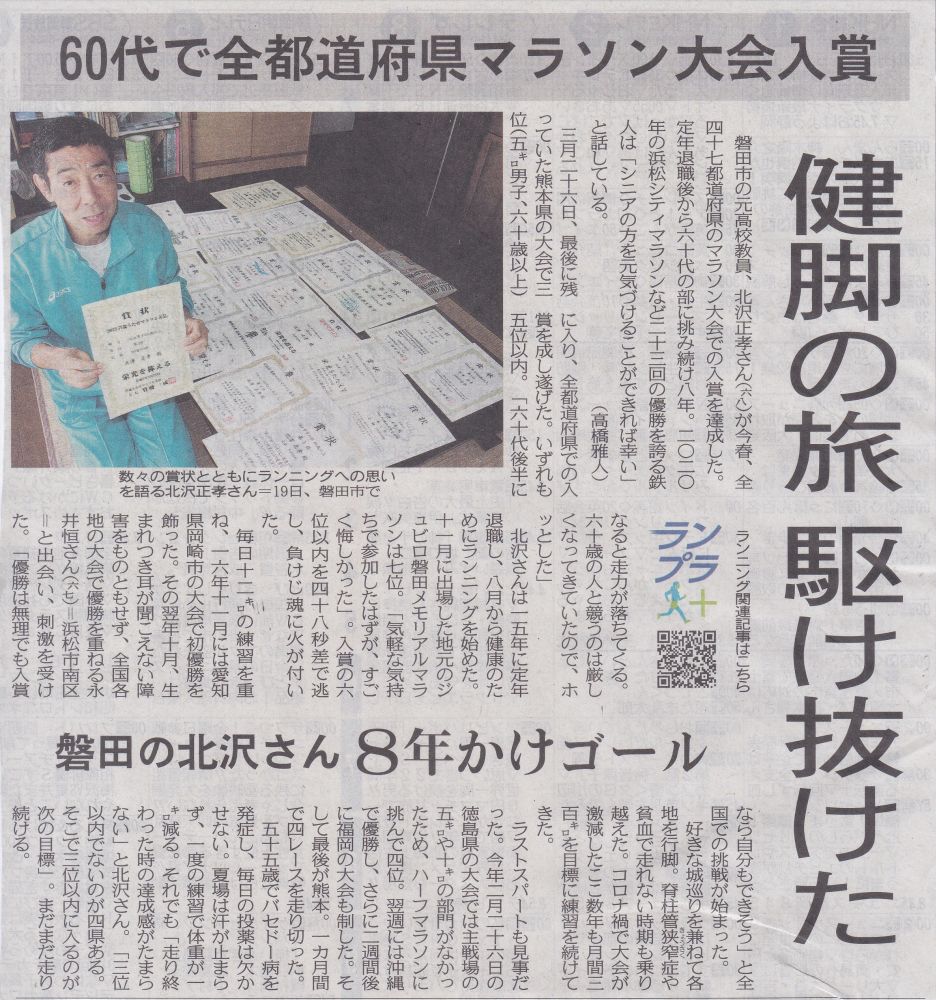 60代で全都道府県マラソン大会入賞
健脚の旅 駆け抜けた
磐田市の元高校教員、北沢正孝さん(六八)が今春、全
四十七都道府県のマラソン大会での入賞を達成した。
定年退職後から六十代の部に挑み続け八年。二〇二〇
年の浜松シティマラソンなど二十三回の優勝を誇る鉄
人は「シニアの方を元気づけることができれば幸い」
と話している。 (高橋雅人)
三月二十六日、最後に残
っていた熊本県の大会で三
位(五㌔男子、六十歳以上)
に入り、全都道府県での入
賞を成し遂げた。いずれも
五位以内。「六十代後半に
賞状
栄光を称える
asics
数々の賞状とともにランニングへの思い
を語る北沢正孝さん＝19日、磐田市で
ランニング関連記事はこちら
ラン
プラ
+
なると走力が落ちてくる。
六十歳の人と競うのは厳し
くなってきていたので、ホ
ッとした」
北沢さんは一五年に定年
退職し、八月から健康のた
めにランニングを始めた。
十一月に出場した地元のジ
ュビロ磐田メモリアルマラ
ソンは七位。「気軽な気持
ちで参加したはずが、すご
く悔しかった」。入賞の六
位以内を四十八秒差で逃
し、負けじ魂に火が付い
た。
毎日十二㌔の練習を重
ね、一六年十一月には愛知
県岡崎市の大会で初優勝を
飾った。その翌年十月、生
まれつき耳が聞こえない障
害をものともせず、全国各
地の大会で優勝を重ねる永
井恒さん(六七)＝浜松市南区
＝と出会い、刺激を受け
た。「優勝は無理でも入賞
磐田の北沢さん 8年かけゴール
なら自分もできそう」と全
国での挑戦が始まった。
好きな城巡りを兼ねて各
地を行脚。脊柱管狭窄症や
きょうさく
貧血で走れない時期も乗り
越えた。コロナ禍で大会が
激減したここ数年も月間三
百㌔を目標に練習を続けて
きた。
ラストスパートも見事だ
った。今年二月二十六日の
徳島県の大会では主戦場の
五㌔や十㌔の部門がなかっ
たため、ハーフマラソンに
挑んで四位。翌週には沖縄
で優勝し、さらに一週間後
に福岡の大会も制した。そ
して最後が熊本。一カ月間
で四レースを走り切った。
五十五歳でバセドー病を
発症し、毎日の投薬は欠か
せない。夏場は汗が止まら
ず、一度の練習で体重が一
㌔減る。それでも「走り終
わった時の達成感がたまら
ない」と北沢さん。「三位
以内でないのが四県ある。
そこで三位以内に入るのが
次の目標」。まだまだ走り
続ける。